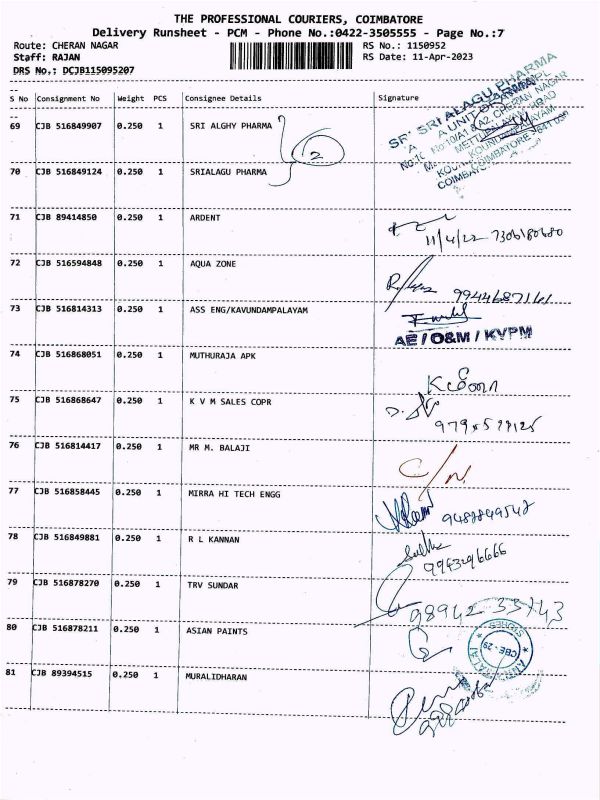 THE PROFESSIONAL COURIERS, COIMBATORE
Delivery Runsheet - PCM - Phone No.:0422-3505555 - Page No.:7
Route: CHERAN NAGAR RS No.: 1150952
Staff: RAJAN RS Date: 11-Apr-2023
DRS No.: DCJB115095207
S No Consignment No Weight PCS Consignee Details Signature
69 CJB 516849907 0.250 1 SRI ALGHY PHARMA
2
SRI ALAGU PHARMA
70 CJB 516849124 0.250 1 SRIALAGU PHARMA
71 CJB 89414850 0.250 1 ARDENT
11/4/22 7306180680
72 CJB 516594848 0.250 1 AQUA ZONE
73 CJB 516814313 0.250 1 ASS ENG/KAVUNDAMPALAYAM
AE / O&M / KVPM
74 CJB 516868051 0.250 1 MUTHURAJA APK
75 CJB 516868647 0.250 1 K V M SALES COPR
76 CJB 516814417 0.250 1 MR M. BALAJI
C/N.
77 CJB 516858445 0.250 1 MIRRA HI TECH ENGG
78 CJB 516849881 0.250 1 R L KANNAN
79 CJB 516878270 0.250 1 TRV SUNDAR
98942 33743
80 CJB 516878211 0.250 1 ASIAN PAINTS
CBE - 29
81 CJB 89394515 0.250 1 MURALIDHARAN